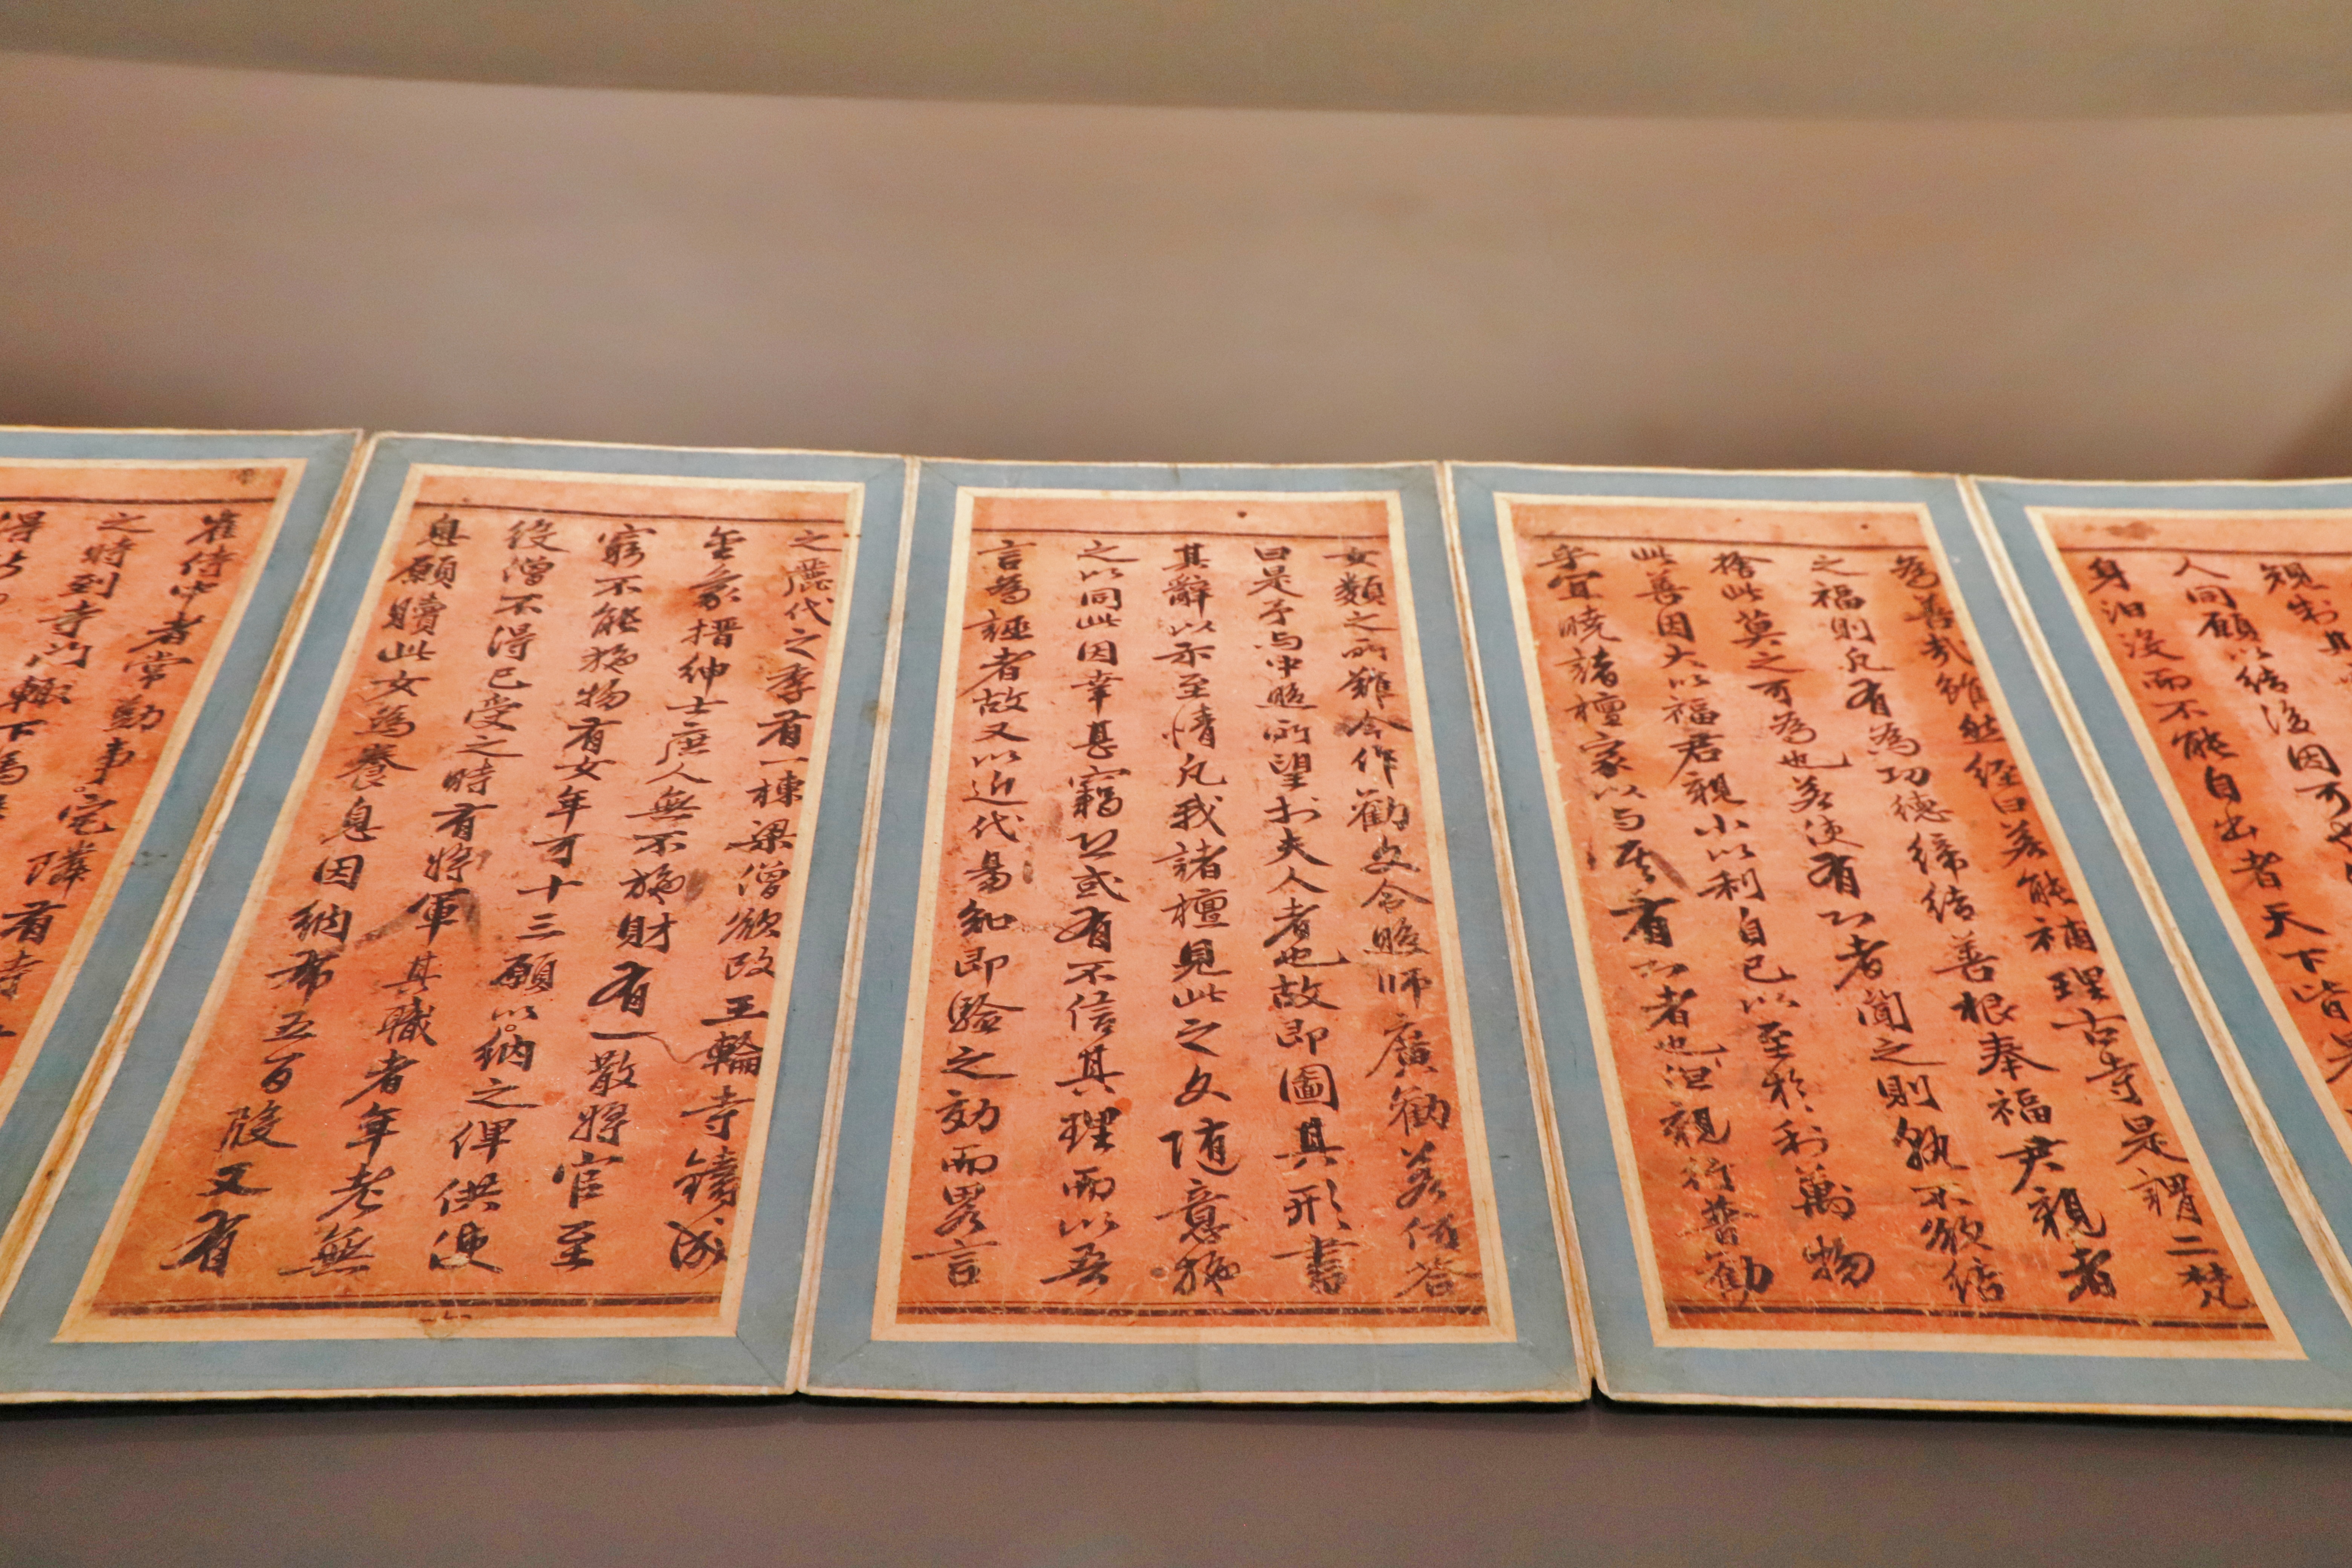 規制其
人間願以結後因可
身汨沒而不能自出者天下皆是
為善哉雖然經曰若能補理古寺是謂二梵
之福則凡有為功德締結善根奉福君親者
捨此莫之可為也若使有心者聞之則孰不欲結
此善因大以福君親小以利自己以至於利萬物
乎宜曉諸檀家以与其有心者也汝親行普勸
女類之所難令作勸文令照師廣勸若何答
曰是予与中照所望於夫人者也故即圖其形書
其辭以示至情凡我諸檀見此之文隨意施
之以同此因幸甚竊恐或有不信其理而以吾
言為誣者故又以近代易知即驗之効而畧言
之麗代之季有一棟梁僧欲改王輪寺鑄成
金象搢紳士庶人無不施財有一散將官至
窮不能施物有女年可十三願以納之俾供使
役僧不得已受之時有將軍其職者年老無
息願贖此女為養息因納布五百段又有
崔侍中者常勤事完隣有寺
之時到寺門輒下馬
得